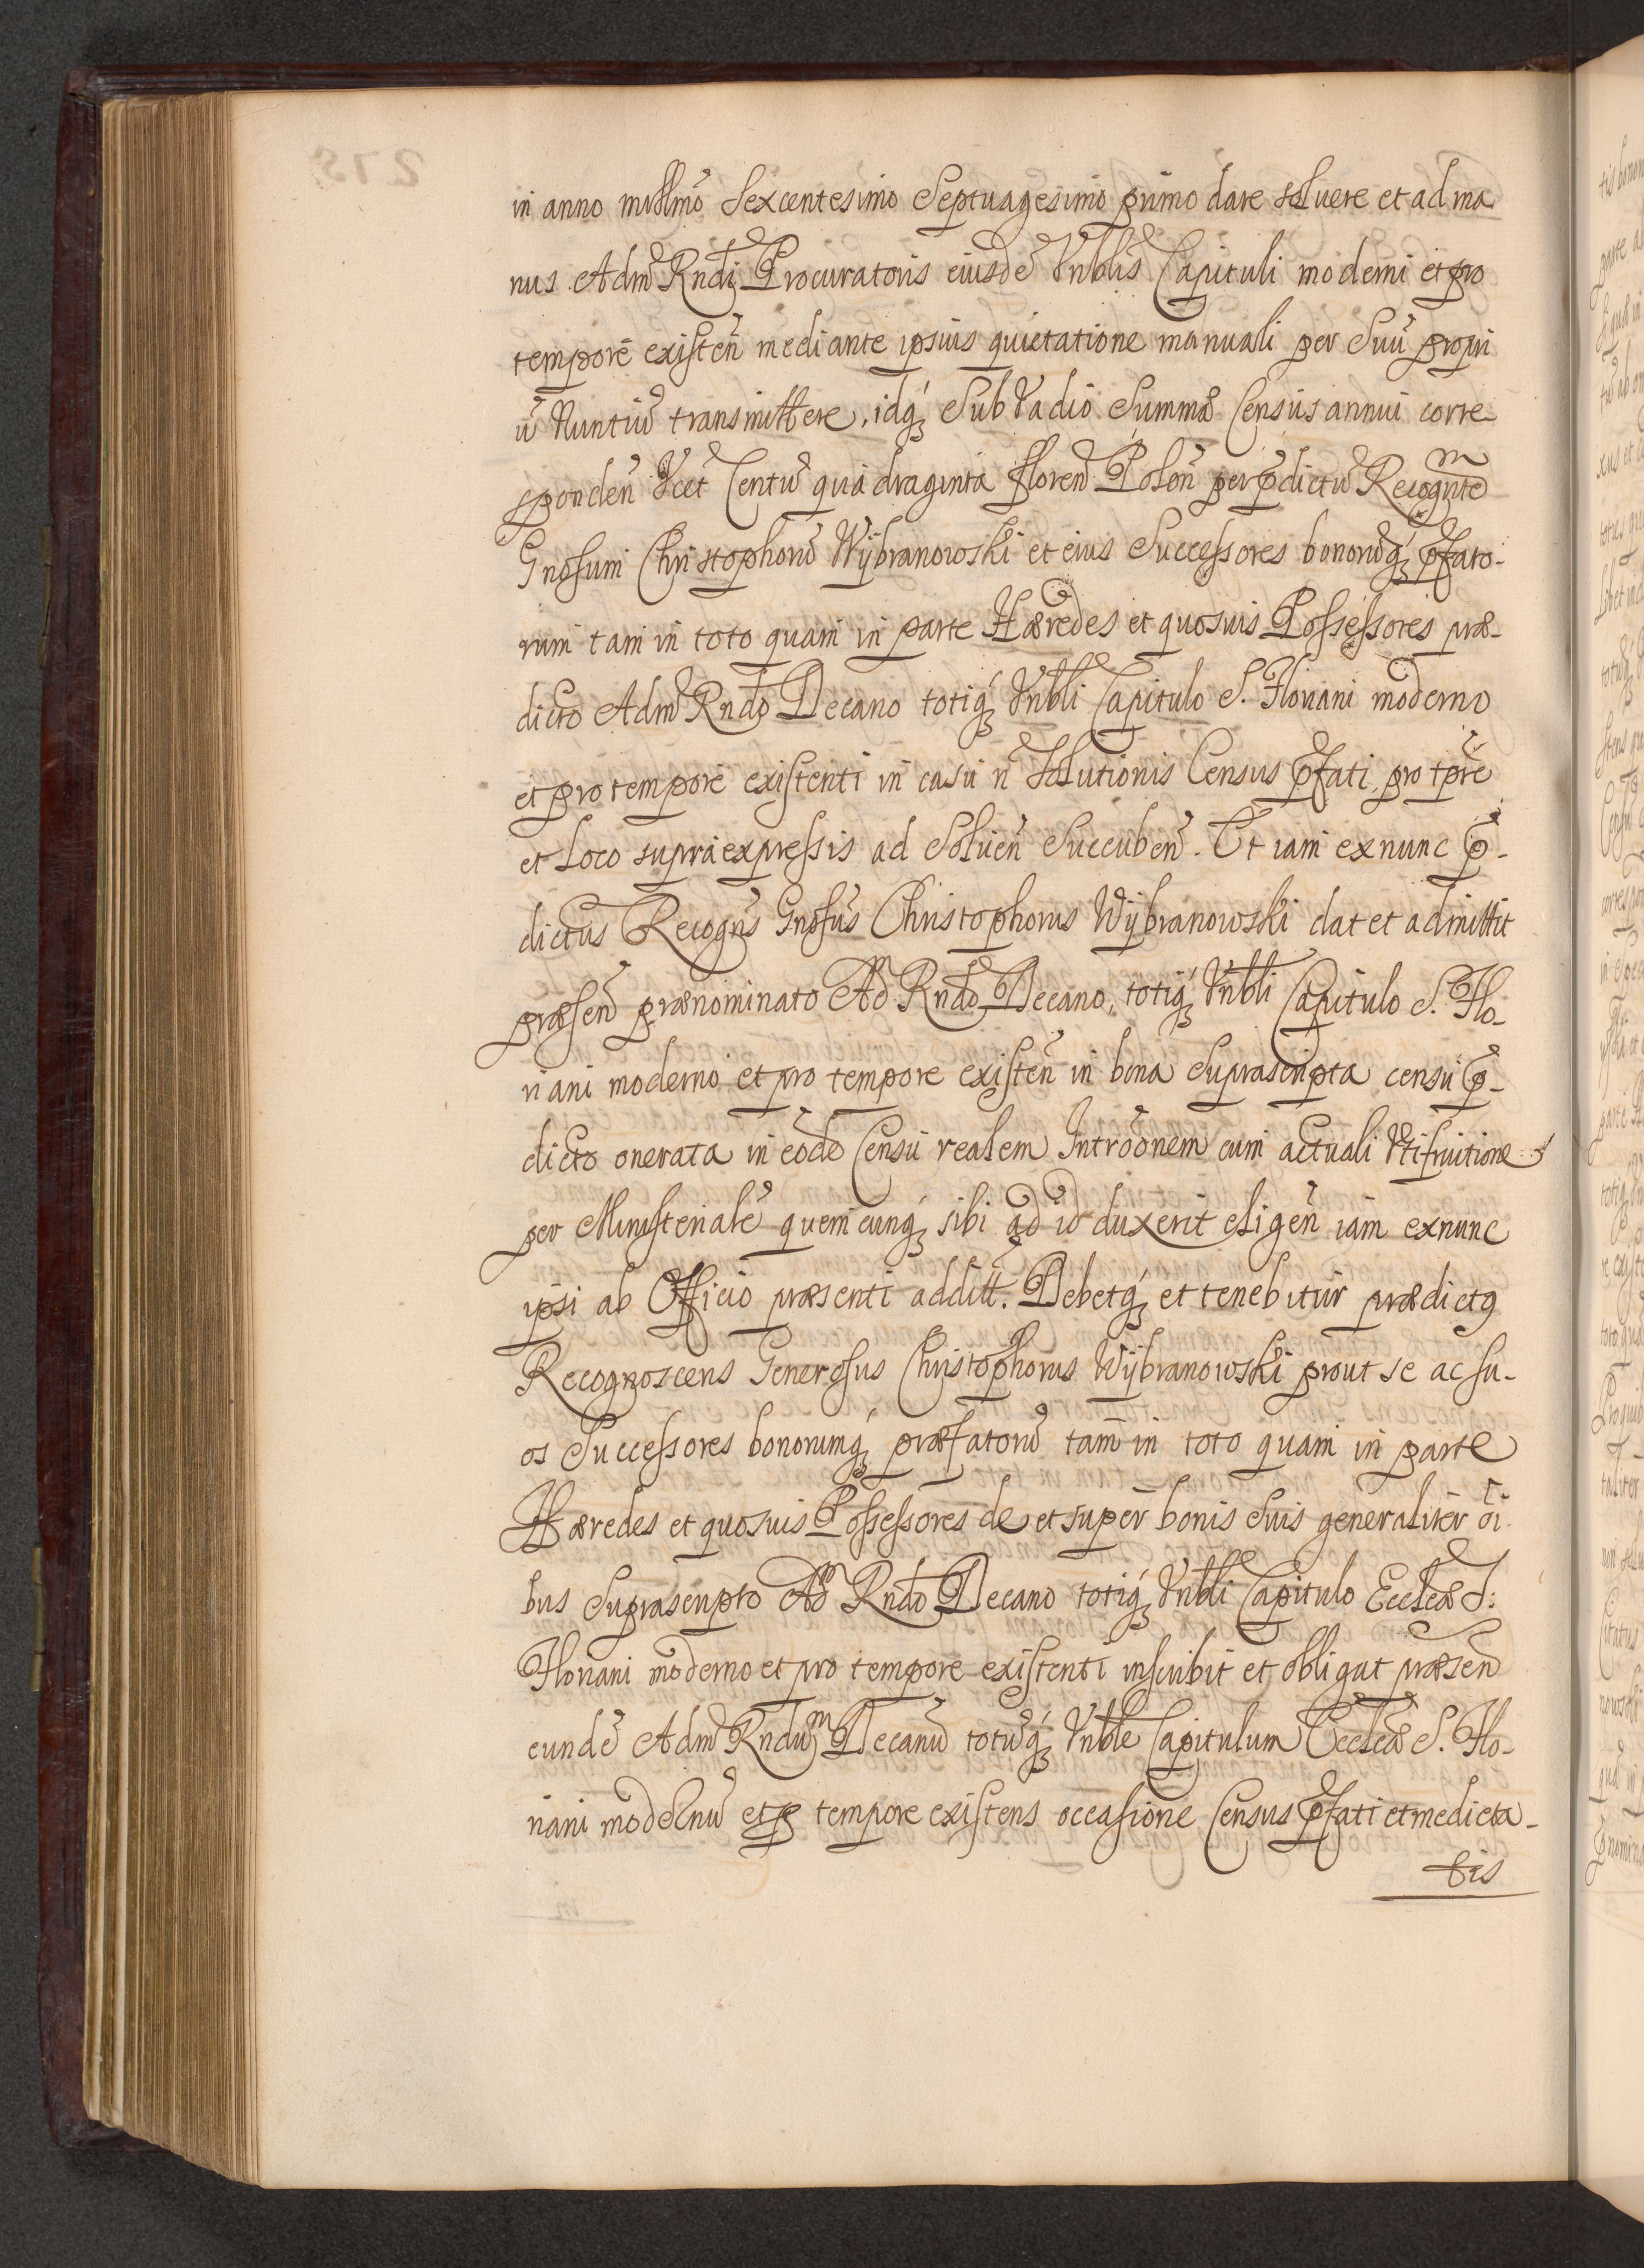 in anno millmō Sexcentesimo Septuagesimo primo dare soluere et ad ma
nus Admʳ Rndi Procuratoris eiusdē Vnblis Capituli moderni et pro
tempore existeñ mediante ipsius quietatione manuali per Suū propri
ū Nuntiū transmittere, idq₃ Sub Vadio Summæ Census annui corre
spondeñ Vcet Centū quadraginta floreñ Poloñ per p̃dictū Recognte͂m
Gnosum Christophorū Wÿbranowski et eius Successores bonorūq₃ p̃fato-
rum tam in toto quam in parte Hæredes et quosuis Possessores præ-
dicto Admʳ Rndo Decano totiq₃ Vnbli Capitulo S. Floriani moderno
et pro tempore existenti in casu ñ Solutionis Census p̃fati, pro tp̃re
et Loco supra expressis ad Soluen͂ Succuben͂. Et iam ex nunc p̃-
dictus Recogn͂s Gnosus Christophorus Wÿbranowski dat et admittit
præsen͂ prænominato Adm Rndo Decano, totiq₃ Vnbli Capitulo S. Flo-
riani moderno et pro tempore existen͂ in bona Suprascripta censu p̃-
dicto onerata in eōdē Censu realem Introōnem cum actuali Vtifruitione
per Ministerialē quemcunq₃ sibi ad id duxerit eligen͂ iam ex nunc
ipsi ab Officio præsenti additt. Debetq₃ et tenebitur prædictꝯ
Recognoscens Generosus Christophorus Wÿbranowski prout se ac su-
os Successores bonorumq₃ præfatorū tam in toto quam in parte
Hæredes et quosuis Possessores de et super bonis Suis generaliter oi͂
bus Suprascripto Adm Rndo Decano totiq₃ Vnbli Capitulo Ecclæ S:
Floriani moderno et pro tempore existenti inscribit et obligat præsen͂
eundē Admʳ Rndum Decanū totūq₃ Vnble Capitulum Ecclæ S. Flo-
riani modernū et p tempore existens occasione Census p̃fati et medieta-
tis